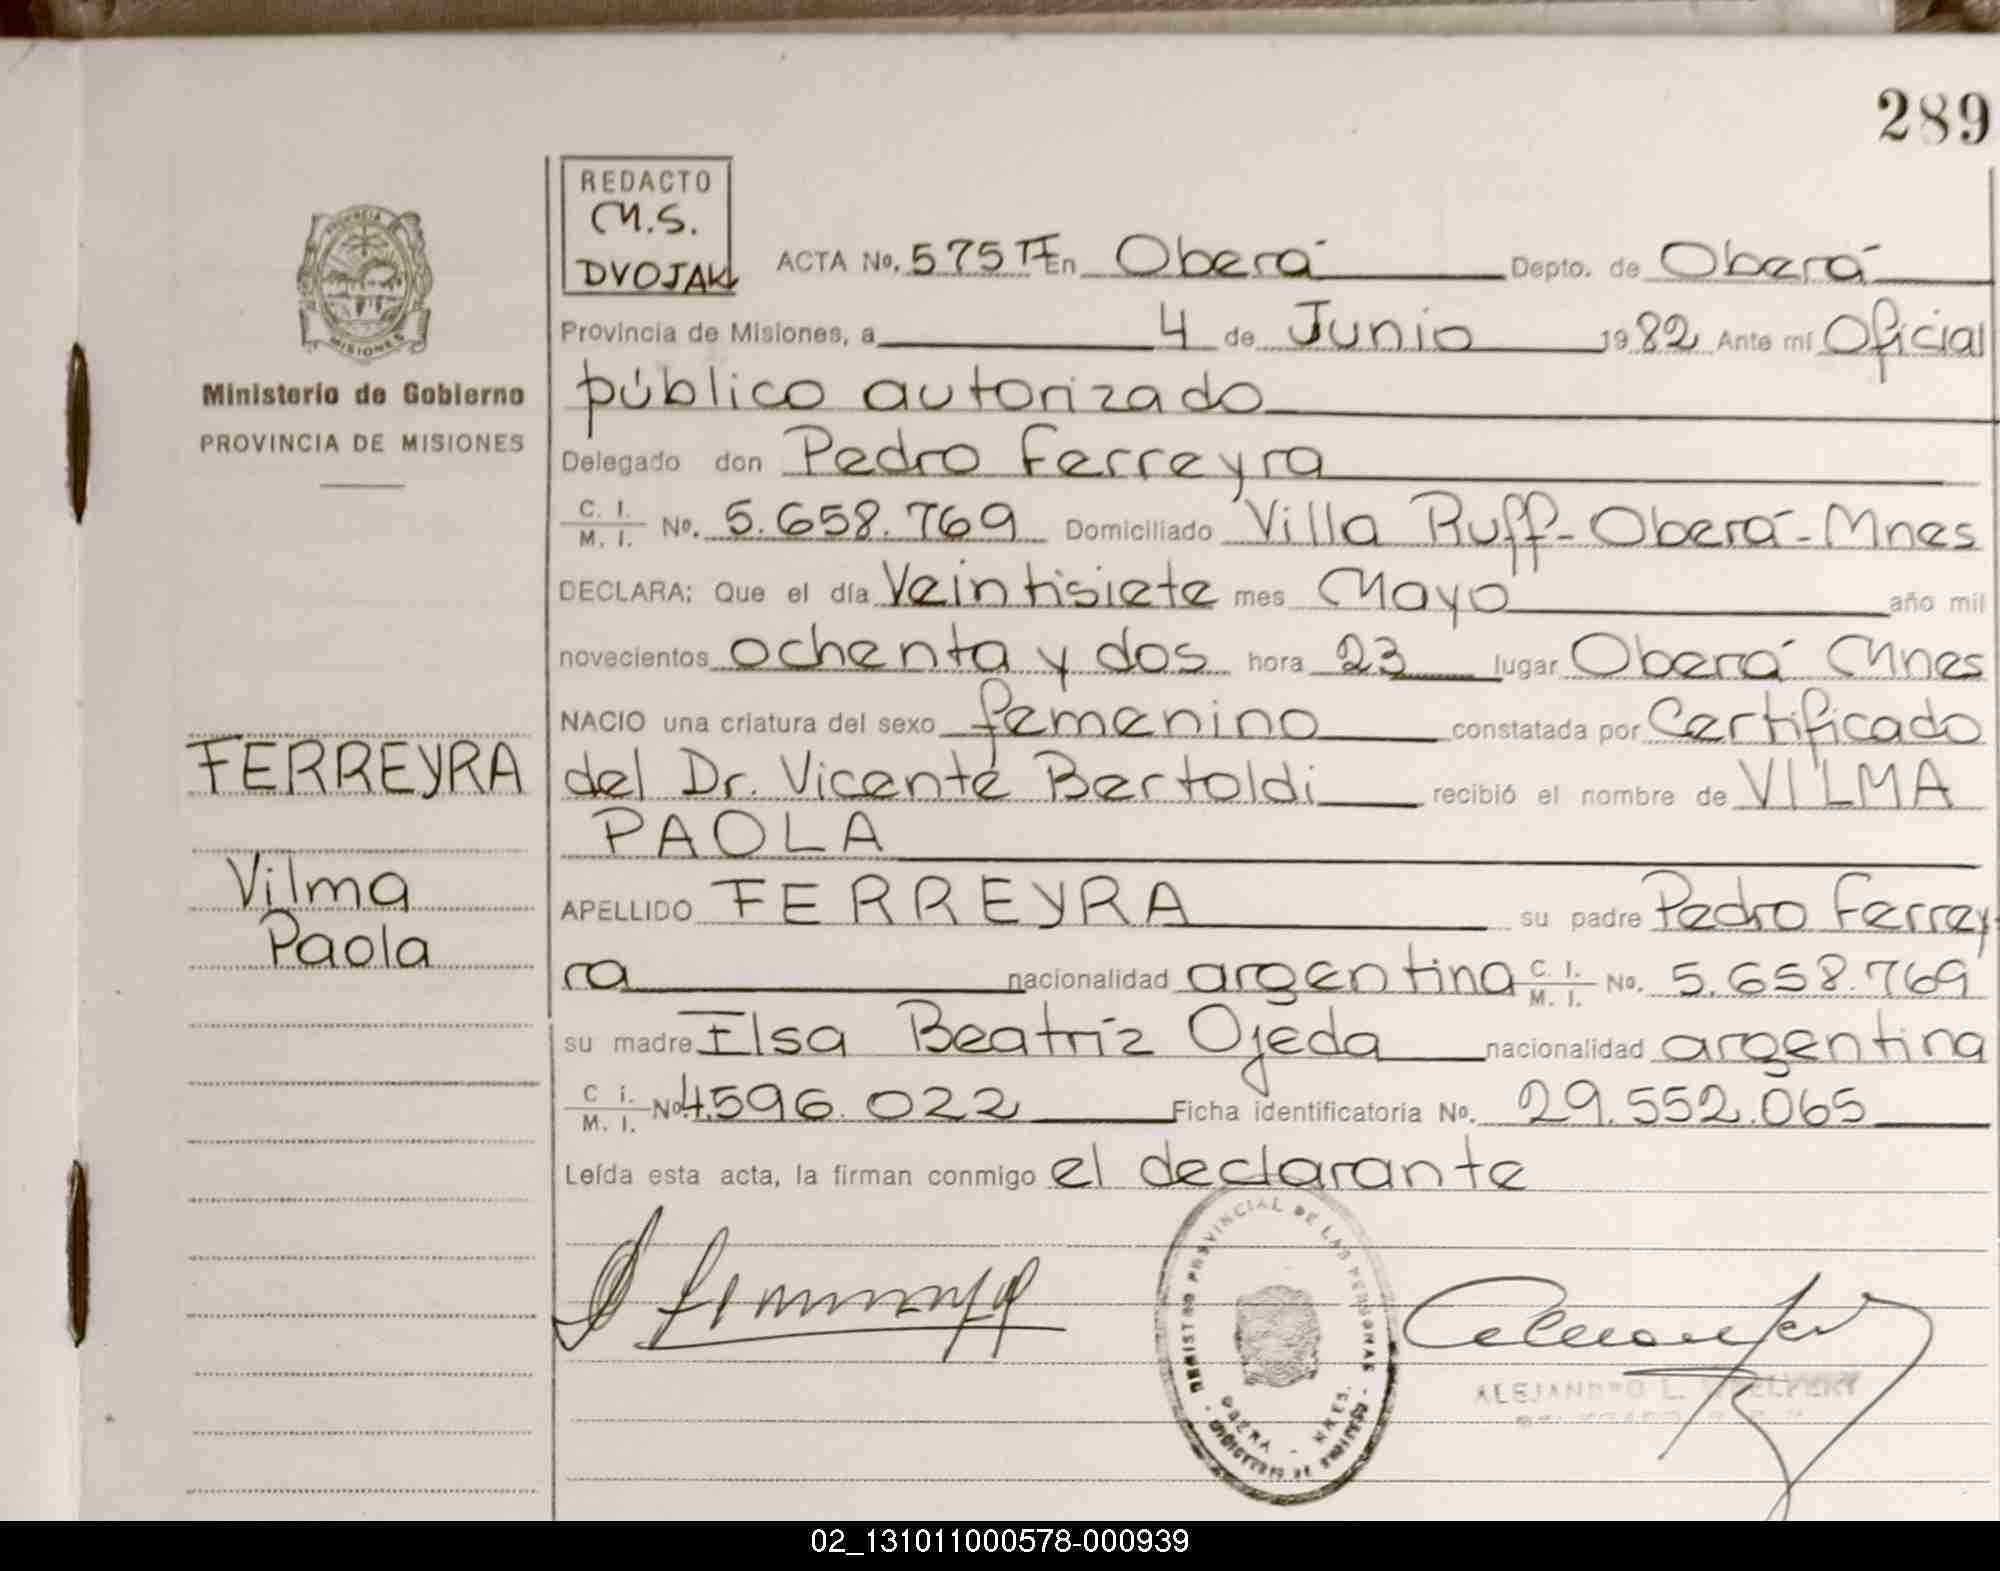 289
REDACTO
M.S.
DVOJAK
ACTA No. 575 TI En Oberá Depto. de Oberá
Provincia de Misiones, a 4 de Junio 1982 Ante mí Oficial
público autorizado
Delegado don Pedro Ferreyra
C. I. M. I. No. 5.658.769 Domiciliado Villa Ruff-Oberá-Mnes
DECLARA: Que el día Veintisiete mes Mayo año mil
novecientos ochenta y dos hora 23 lugar Oberá Mnes
NACIO una criatura del sexo femenino constatada por Certificado
del Dr. Vicente Bertoldi recibió el nombre de VILMA
PAOLA
APELLIDO FERREYRA su padre Pedro Ferrey
ra nacionalidad argentina C. I. M. I. No. 5.658.769
su madre Elsa Beatríz Ojeda nacionalidad argentina
C i. M. I. No 4.596.022 Ficha identificatoria No. 29.552.065
Leída esta acta, la firman conmigo el declarante
PROVINCIA
MISIONES
Ministerio de Gobierno
PROVINCIA DE MISIONES
FERREYRA
Vilma
Paola
REGISTRO PROVINCIAL DE LAS PERSONAS
OBERA - MNES.
ALEJANDRO L.
02_131011000578-000939